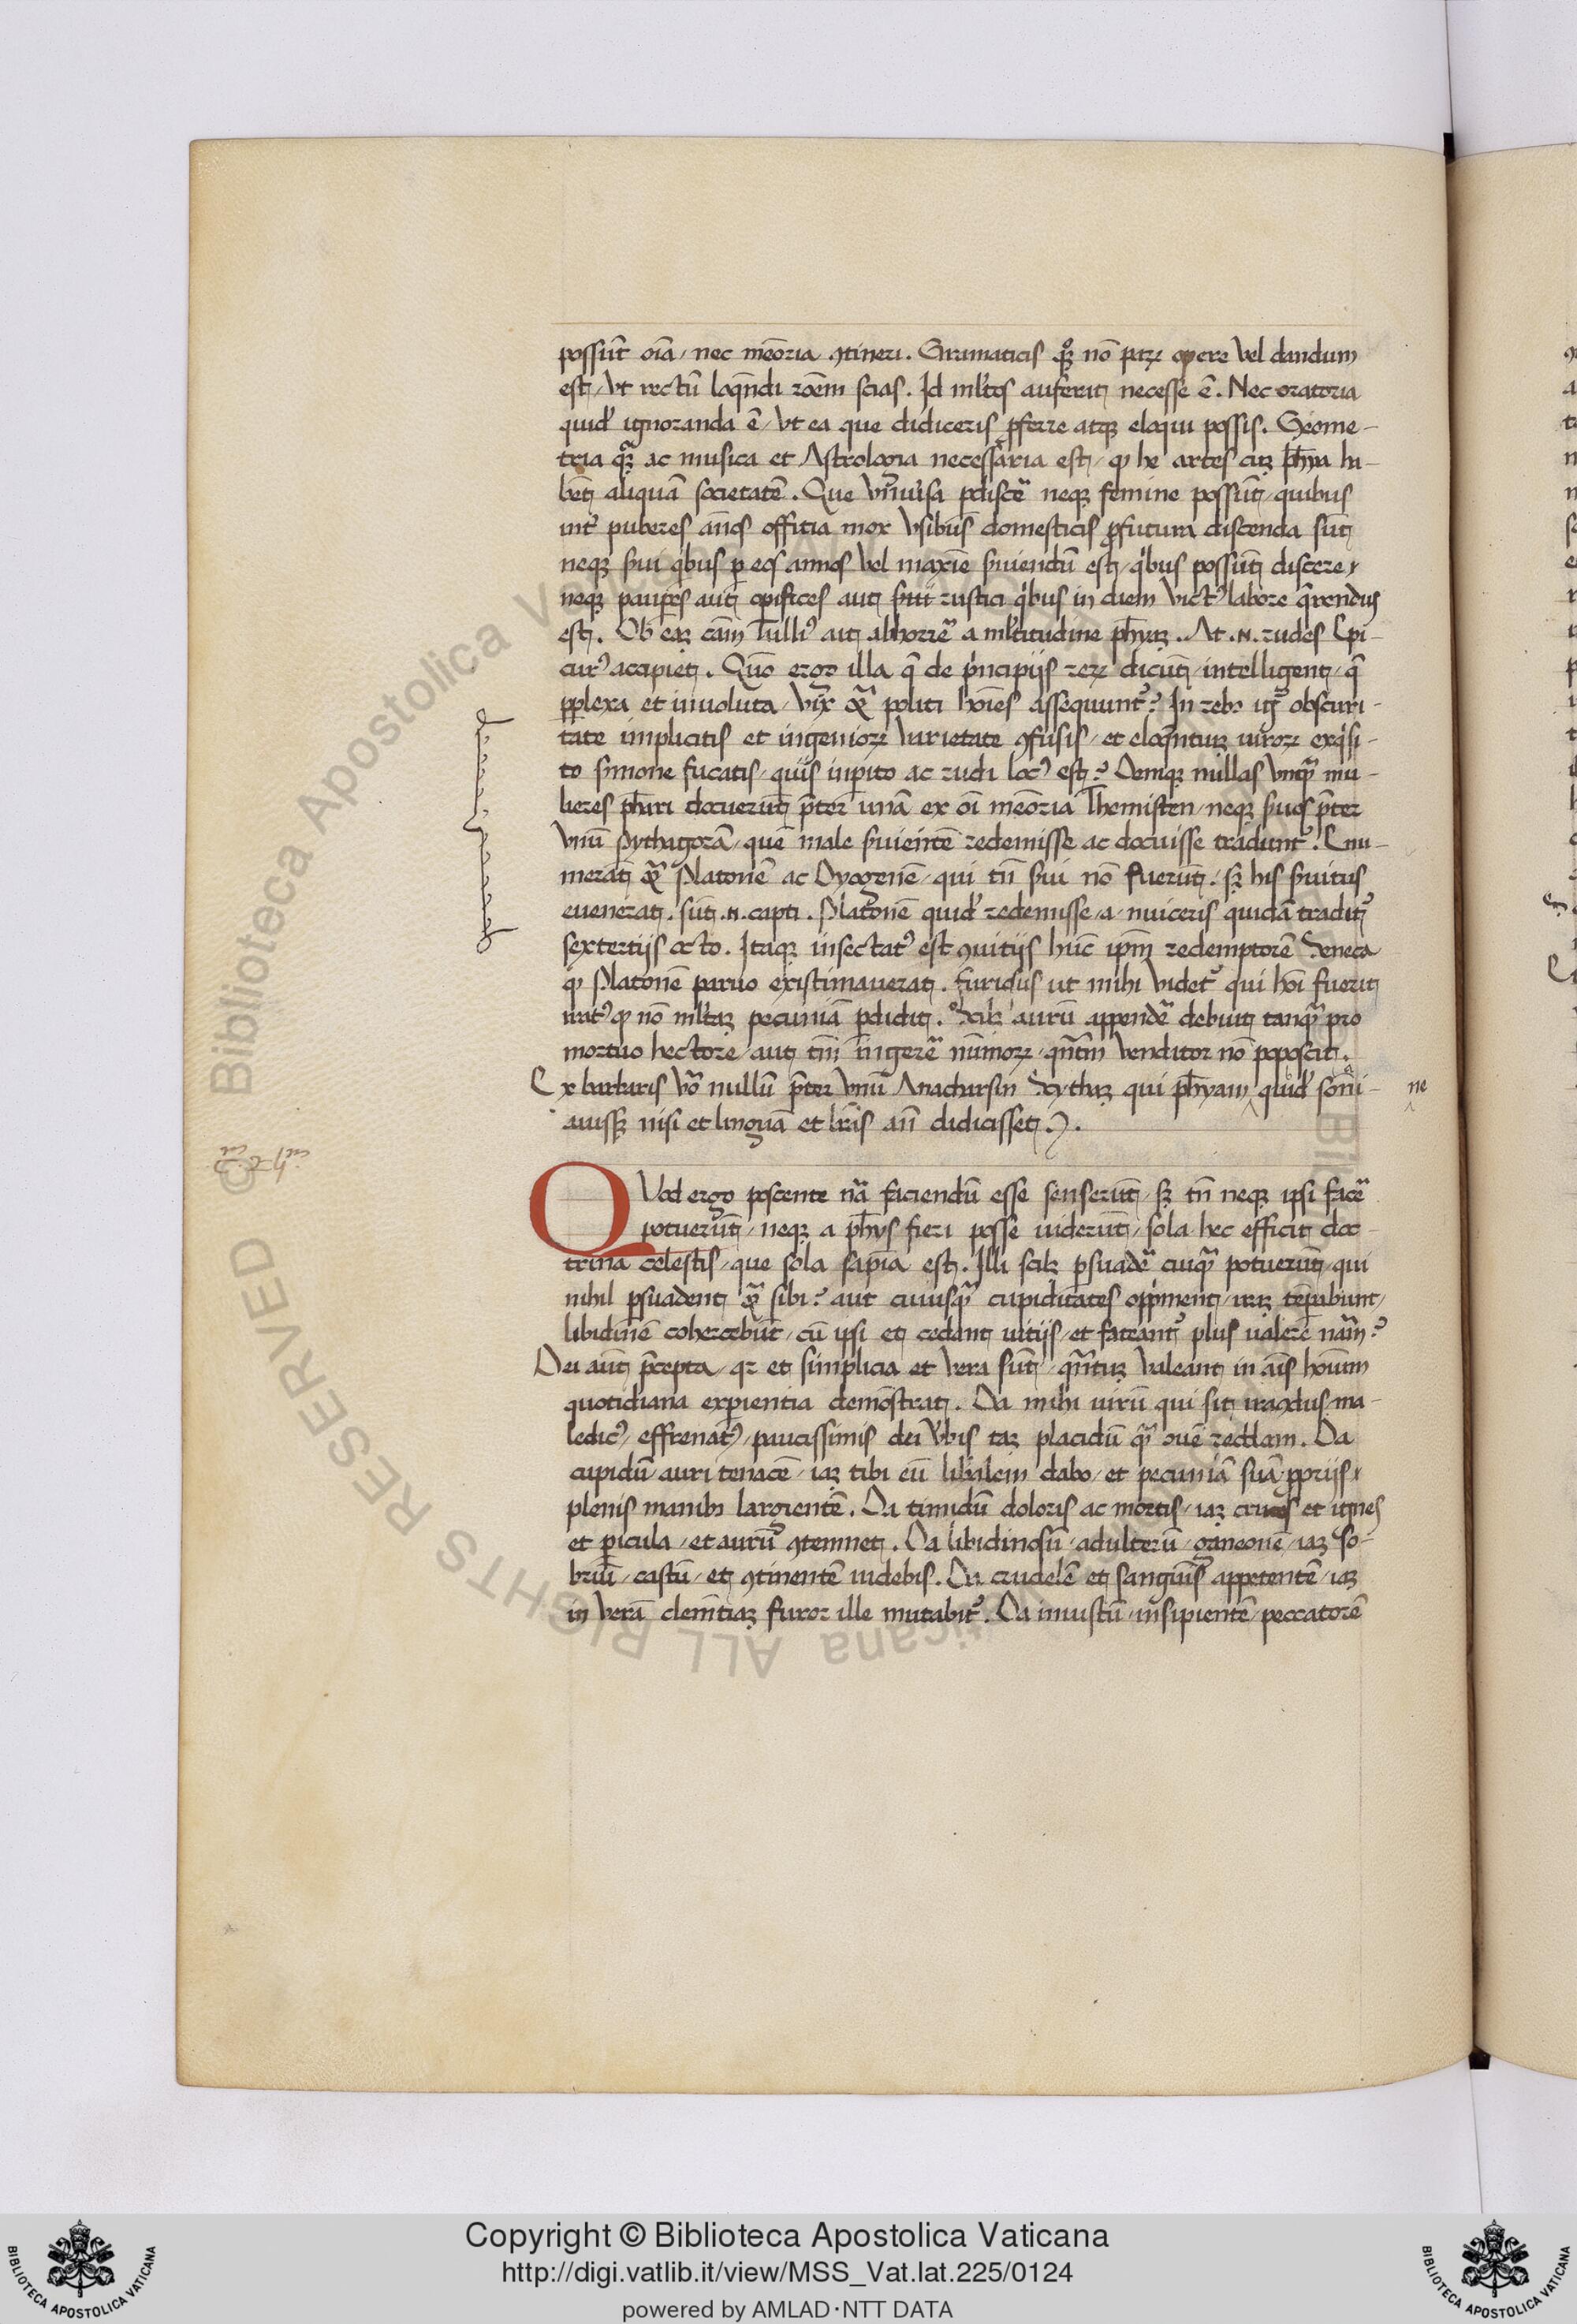 possūt oīa / nec mēoria ꝯtineri . Gramaticis qͦꝫ nō paꝝ opere vel dandum
est / vt rectū loqn̄di roēm scias . Id ml̓tos auferat necesse ē . Nec oratoria
quid̓ ignoranda ē / vt ea que didiceris ꝓferre atqꝫ eloqui possis . Geome-
tria qͦꝫ ac musica et Astrologia necessaria est / ꝙ he artes cuꝫ ph̄ya ha-
bēt aliquā societatē . Que vniuersa ꝑdiscē neqꝫ femine possūt / quibus
int̓ puberes ānos offitia mox vsibus domesticis ꝓfutura discenda sūt
neqꝫ ẜui qͥbus ꝑ eos annos vel maxīe ẜuiendū est / qͥbus possūt discere /
neqꝫ paupes aut opifices aut rustici qͥbus in diem victꝰ labore q̄rendus
est . Ob eaꝫ cām Tulliꝰ ait abhorrē a ml̓titudine ph̄yaꝫ . At .N. rudes Epi-
curꝰ accipiet . Quō ergo illa q̄ de pͥncipijs reꝝ dicūt / intelligent / q̄
ꝑplexa et inuoluta / vix q̄ politi hoīes assequuntᷣ ? In rebꝫ igͥ obscuri-
tate implicitis et ingenioꝝ varietate ꝯfusis / et eloqn̄tiuꝫ uiroꝝ exqͥsi-
to ẜmone fucatis / quis inꝑito ac rudi locꝰ est ? Deniqꝫ nullas vnqͣ mu-
lieres ph̄ari docuerūt p̄ter unā ex oī mēoria Themisten / neqꝫ ẜuos p̄ter
vnū Pythagorā / quē male ẜuientē redemisse ac docuisse tradūtᷣ . Enu-
merāt qͣ Platonē ac Dyogenē / qui tn̄ ẜui nō fuerūt / sꝫ his ẜuitus
euenerat . sūt .N. capti . Platonē quid̓ redemisse / a / niuceris quidā traditᷣ
sextertijs octo . Itaqꝫ insectatꝰ est ꝯuitijs hūc ipm̄ redemptorē Seneca
ꝙ Platonē paruo existimauerat . furiosus ut mihi videtᷣ qui hoī fuerit
iratꝰ ꝙ nō ml̓taꝫ pecuniā ꝑdidit . Scilꝫ aurū appendē debuit tanqͣ pro
mortuo hectore / aut tm̄ ingerē nūmoꝝ / qn̄tm̄ venditor nō poposcit .
Ex barbaris vͦ nullū p̄ter vnū Anacharsin Scythaꝫ qui ph̄yam ne quid̓ somͣni-
auisset nisi et linguā et lr̄as an̄ didicisset .
QVod ergo poscente nā faciendū esse senserūt / sꝫ tn̄ neqꝫ ipsi facē
potuerūt / neqꝫ a ph̄ys fieri posse uiderūt / sola hec efficit doc-
trina celestis / que sola sapīa est . Illi scilꝫ ꝑsuadē cuiqͣ potuerūt / qui
nihil ꝑsuadent qͣ sibi ? aut cuiusqͣ cupiditates oppͥment / iraꝫ tēꝑabunt /
libidinē cohercebūt / cū ipsi et cedant uitijs / et fateantᷣ plus ualere nām ?
Dei aūt p̄cepta / qꝛ et simplicia et vera sūt / qn̄tuꝫ valeant in aīs hoīum
quotidiana exꝑientia demōstrat . Da mihi uirū qui sit iracūdus / ma-
ledicꝰ / effrenatꝰ / paucissimis dei v̓bis taꝫ placidū qͣ ouē reddam . Da
cupidū / auri tenacē / iaꝫ tibi eū libalem dabo / et pecuniā suā ꝓprijs /
plenis manibꝫ largientē . Da timidū doloris ac mortis / iaꝫ cruces et ignes
et ꝑicula / et aurū ꝯtemnet . Da libidinosū / adulterū / ganeonē / iaꝫ so-
briū / castū / et ꝯtinentē uidebis . Da crudelē et sanguīs appetentē / iaꝫ
in verā clemētiaꝫ furor ille mutabitᷣ . Da iniustū / insipientē / peccatorē
ne
Copyright © Biblioteca Apostolica Vaticana
http://digi.vatlib.it/view/MSS_Vat.lat.225/0124
powered by AMLAD·NTT DATA
BIBLIOTECA APOSTOLICA VATICANA
BIBLIOTECA APOSTOLICA VATICANA
© Biblioteca Apostolica Vaticana ALL RIGHTS RESERVED